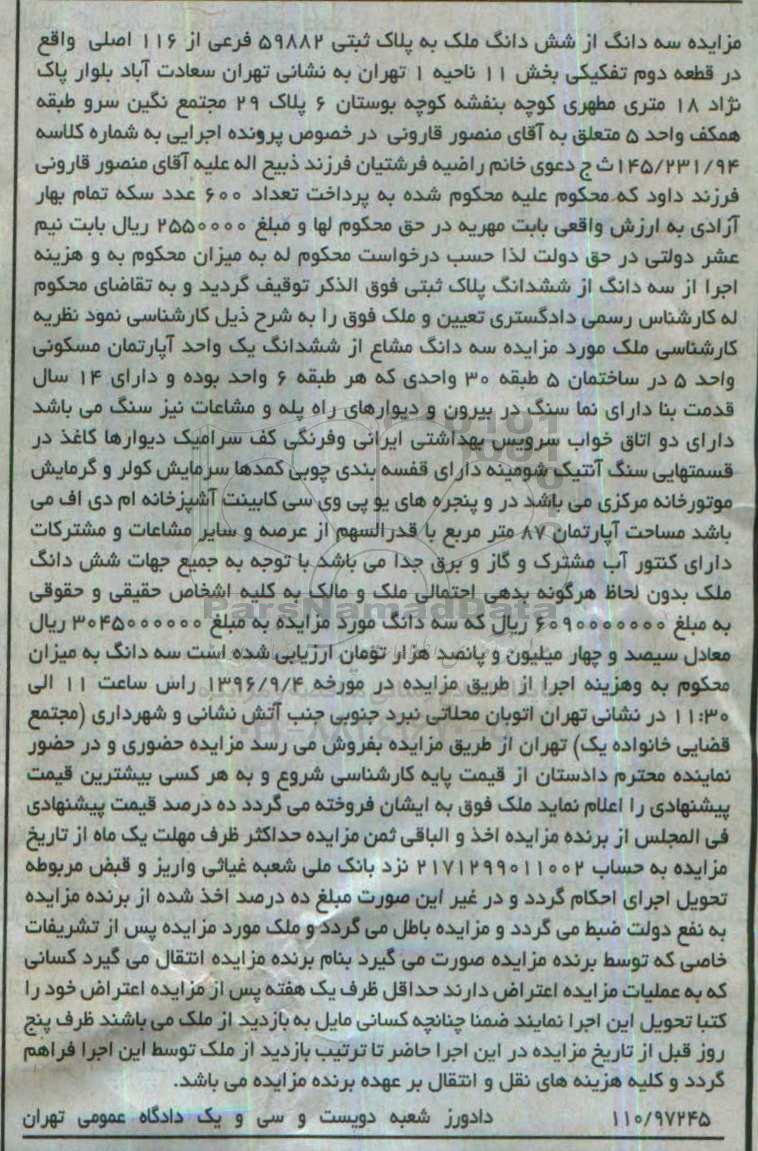 مزایده سه دانگ از شش دانگ ملک به پلاک ثبتی ۵۹۸۸۲ فرعی از ۱۱۶ اصلی واقع
در قطعه دوم تفکیکی بخش ۱۱ ناحیه ۱ تهران به نشانی تهران سعادت آباد بلوار پاک
نژاد ۱۸ متری مطهری کوچه بنفشه کوچه بوستان ۶ پلاک ۲۹ مجتمع نگین سرو طبقه
همکف واحد ۵ متعلق به آقای منصور قارونی در خصوص پرونده اجرایی به شماره کلاسه
۱۴۵/۲۳۱/۹۴ث ج دعوی خانم راضیه فرشتیان فرزند ذبیح اله علیه آقای منصور قارونی
فرزند داود که محکوم علیه محکوم شده به پرداخت تعداد ۶۰۰ عدد سکه تمام بهار
آزادی به ارزش واقعی بابت مهریه در حق محکوم لها و مبلغ ۲۵۵۰۰۰۰ ریال بابت نیم
عشر دولتی در حق دولت لذا حسب درخواست محکوم له به میزان محکوم به و هزینه
اجرا از سه دانگ از ششدانگ پلاک ثبتی فوق الذکر توقیف گردید و به تقاضای محکوم
له کارشناس رسمی دادگستری تعیین و ملک فوق را به شرح ذیل کارشناسی نمود نظریه
کارشناسی ملک مورد مزایده سه دانگ مشاع از ششدانگ یک واحد آپارتمان مسکونی
واحد ۵ در ساختمان ۵ طبقه ۳۰ واحدی که هر طبقه ۶ واحد بوده و دارای ۱۴ سال
قدمت بنا دارای نما سنگ در بیرون و دیوارهای راه پله و مشاعات نیز سنگ می باشد
دارای دو اتاق خواب سرویس بهداشتی ایرانی وفرنگی کف سرامیک دیوارها کاغذ در
قسمتهایی سنگ آنتیک شومینه دارای قفسه بندی چوبی کمدها سرمایش کولر و گرمایش
موتورخانه مرکزی می باشد در و پنجره های یو پی وی سی کابینت آشپزخانه ام دی اف می
باشد مساحت آپارتمان ۸۷ متر مربع با قدرالسهم از عرصه و سایر مشاعات و مشترکات
دارای کنتور آب مشترک و گاز و برق جدا می باشد با توجه به جمیع جهات شش دانگ
ملک بدون لحاظ هرگونه بدهی احتمالی ملک و مالک به کلیه اشخاص حقیقی و حقوقی
به مبلغ ۶۰۹۰۰۰۰۰۰۰ ریال که سه دانگ مورد مزایده به مبلغ ۳۰۴۵۰۰۰۰۰۰ ریال
معادل سیصد و چهار میلیون و پانصد هزار تومان ارزیابی شده است سه دانگ به میزان
محکوم به وهزینه اجرا از طریق مزایده در مورخه ۱۳۹۶/۹/۴ راس ساعت ۱۱ الی
۱۱:۳۰ در نشانی تهران اتوبان محلاتی نبرد جنوبی جنب آتش نشانی و شهرداری (مجتمع
قضایی خانواده یک) تهران از طریق مزایده بفروش می رسد مزایده حضوری و در حضور
نماینده محترم دادستان از قیمت پایه کارشناسی شروع و به هر کسی بیشترین قیمت
پیشنهادی را اعلام نماید ملک فوق به ایشان فروخته می گردد ده درصد قیمت پیشنهادی
فی المجلس از برنده مزایده اخذ و الباقی ثمن مزایده حداکثر ظرف مهلت یک ماه از تاریخ
مزایده به حساب ۲۱۷۱۲۹۹۰۱۱۰۰۲ نزد بانک ملی شعبه غیاثی واریز و قبض مربوطه
تحویل اجرای احکام گردد و در غیر این صورت مبلغ ده درصد اخذ شده از برنده مزایده
به نفع دولت ضبط می گردد و مزایده باطل می گردد و ملک مورد مزایده پس از تشریفات
خاصی که توسط برنده مزایده صورت می گیرد بنام برنده مزایده انتقال می گیرد کسانی
که به عملیات مزایده اعتراض دارند حداقل ظرف یک هفته پس از مزایده اعتراض خود را
کتبا تحویل این اجرا نمایند ضمنا چنانچه کسانی مایل به بازدید از ملک می باشند ظرف پنج
روز قبل از تاریخ مزایده در این اجرا حاضر تا ترتیب بازدید از ملک توسط این اجرا فراهم
گردد و کلیه هزینه های نقل و انتقال بر عهده برنده مزایده می باشد.
۱۱۰/۹۷۲۴۵ دادورز شعبه دویست و سی و یک دادگاه عمومی تهران
ParsNamadData